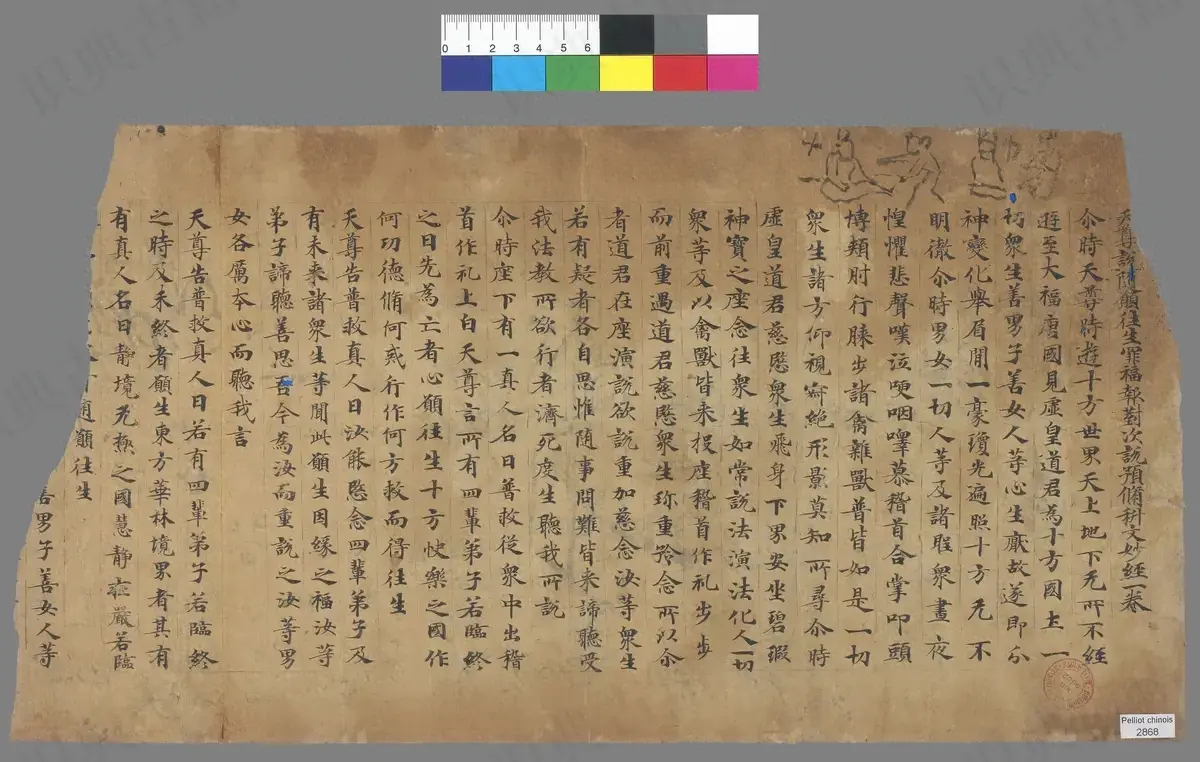 天尊說隨願往生罪福報對次說預脩科文妙經一卷
尒時天尊時遊十方世界天上地下无所不經
遊至大福唐國見虛皇道君為十方國土一
切衆生善男子善女人等心生厭故遂即尒
神變化舉眉間一豪瓊光遍照十方无不
明徹尒時男女一切人等及諸聖衆晝夜
惶懼悲聲嘆泣哽咽嘷慕稽首合掌叩頭
博頰肘行膝步諸禽雜獸普皆如是一切
衆生諸方仰視窈絕形景莫知所尋尒時
虛皇道君慈愍衆生飛身下界安坐碧瑕
神寶之座念往衆生如常說法演法化人一切
衆等及以禽獸皆來投座稽首作礼步步
而前重遇道君慈愍衆生珎重矜念所以尒
者道君在座演說欲說重加慈念汝等衆生
若有疑者各自思惟随事問難皆來諦聽受
我法教所欲行者濟死度生聽我所說
尒時座下有一真人名曰普救從衆中出稽
首作礼上白天尊言所有四輩弟子若臨終
之日先為亡者心願往生十方快樂之國作
何功德脩何戒行作何方救而得往生
天尊告普救真人曰汝能愍念四輩弟子及
有未來諸衆生等聞此願生因緣之福汝等
弟子諦聽善思吾今為汝而重說之汝等男
女各厲本心而聽我言
天尊告普救真人曰若有四輩弟子若臨終
之時及未終者願生東方華林境界者其有
有真人名曰静境无極之國慧静莊嚴若臨
願往生
善男子善女人等
0 1 2 3 4 5 6
Pelliot chinois
2868